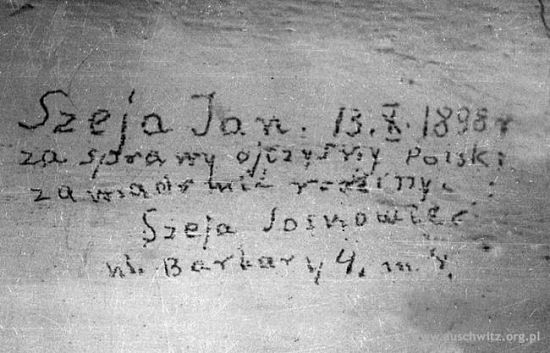 Szeja Jan. 13.X.1898 r
za sprawy ojczyzny Polski
zawiadomić rodziny.:
Szeja Sosnowiec
ul. Barbary 4. m.
www.auschwitz.org.pl